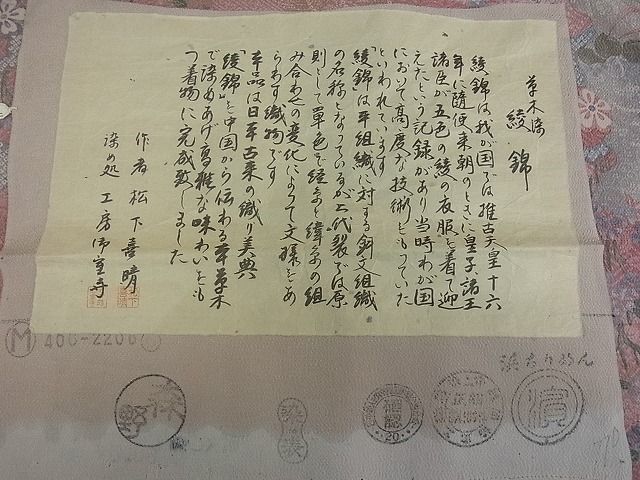 草木染
綾錦
綾錦は我が国では推古天皇十六
年に隨使来朝のときに皇子、諸王
諸臣が五色の綾の衣服を着て迎
えたという記録があり当時わが国
において高度な技術をもっていた
といわれています
「綾錦は平組織に対する斜文組織
の名称となっているが上代裂では原
則として単色を経糸と緯糸の組
み合わせの変化によって文様をあ
らわす織物です
本品は日本古来の織り美典
「綾錦」を中国から伝わる草木
で染めあげ高雅な味わいをも
つ着物に完成致しました
作者 松下喜晴
染め処 工房御室寺
M 466-2206
浜ちりめん
濱
確認
20